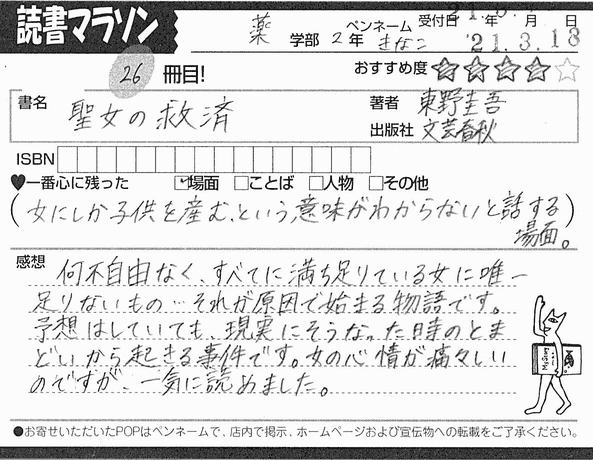 読書マラソン
薬 学部 2年 ペンネーム きなこ 受付日 年 月 日
21.3.18
26 冊目! おすすめ度
書名 聖女の救済 著者 東野圭吾
出版社 文芸春秋
ISBN
♥一番心に残った 場面 ことば 人物 その他
(女にしか子供を産む、という意味がわからないと話する
場面。)
感想 何不自由なく、すべてに満ち足りている女に唯一
足りないもの…それが原因で始まる物語です。
予想はしていても、現実にそうなった時のとま
どいから起きる事件です。女の心情が痛々しい
のですが、一気に読めました。
●お寄せいただいたPOPはペンネームで、店内で掲示、ホームページおよび宣伝物への転載をご了承ください。